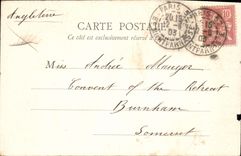 Angleterre
CARTE POSTALE
Ce côté est exclusivement réservé à
PARIS
03
10
Miss Andrée Manger
Convent of the Retreat
Burnham
Somerset